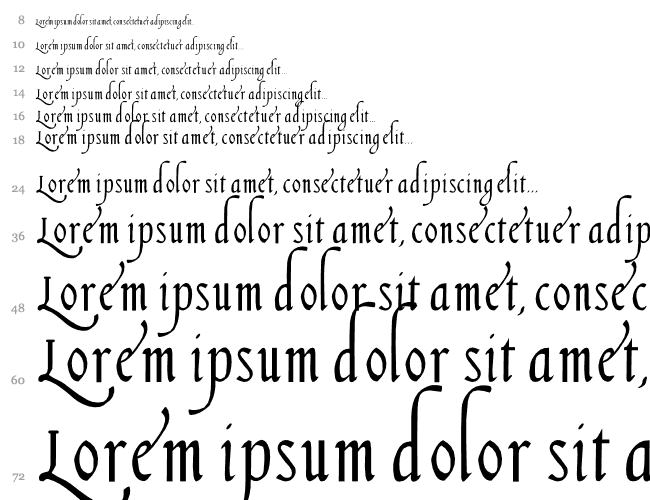 8 Lorem ipsum dolor sit amet, consectetuer adipiscing elit...
10 Lorem ipsum dolor sit amet, consectetuer adipiscing elit...
12 Lorem ipsum dolor sit amet, consectetuer adipiscing elit...
14 Lorem ipsum dolor sit amet, consectetuer adipiscing elit...
16 Lorem ipsum dolor sit amet, consectetuer adipiscing elit...
18 Lorem ipsum dolor sit amet, consectetuer adipiscing elit...
24 Lorem ipsum dolor sit amet, consectetuer adipiscing elit...
36 Lorem ipsum dolor sit amet, consectetuer adip
48 Lorem ipsum dolor sit amet, consec
60 Lorem ipsum dolor sit amet,
72 Lorem ipsum dolor sit a